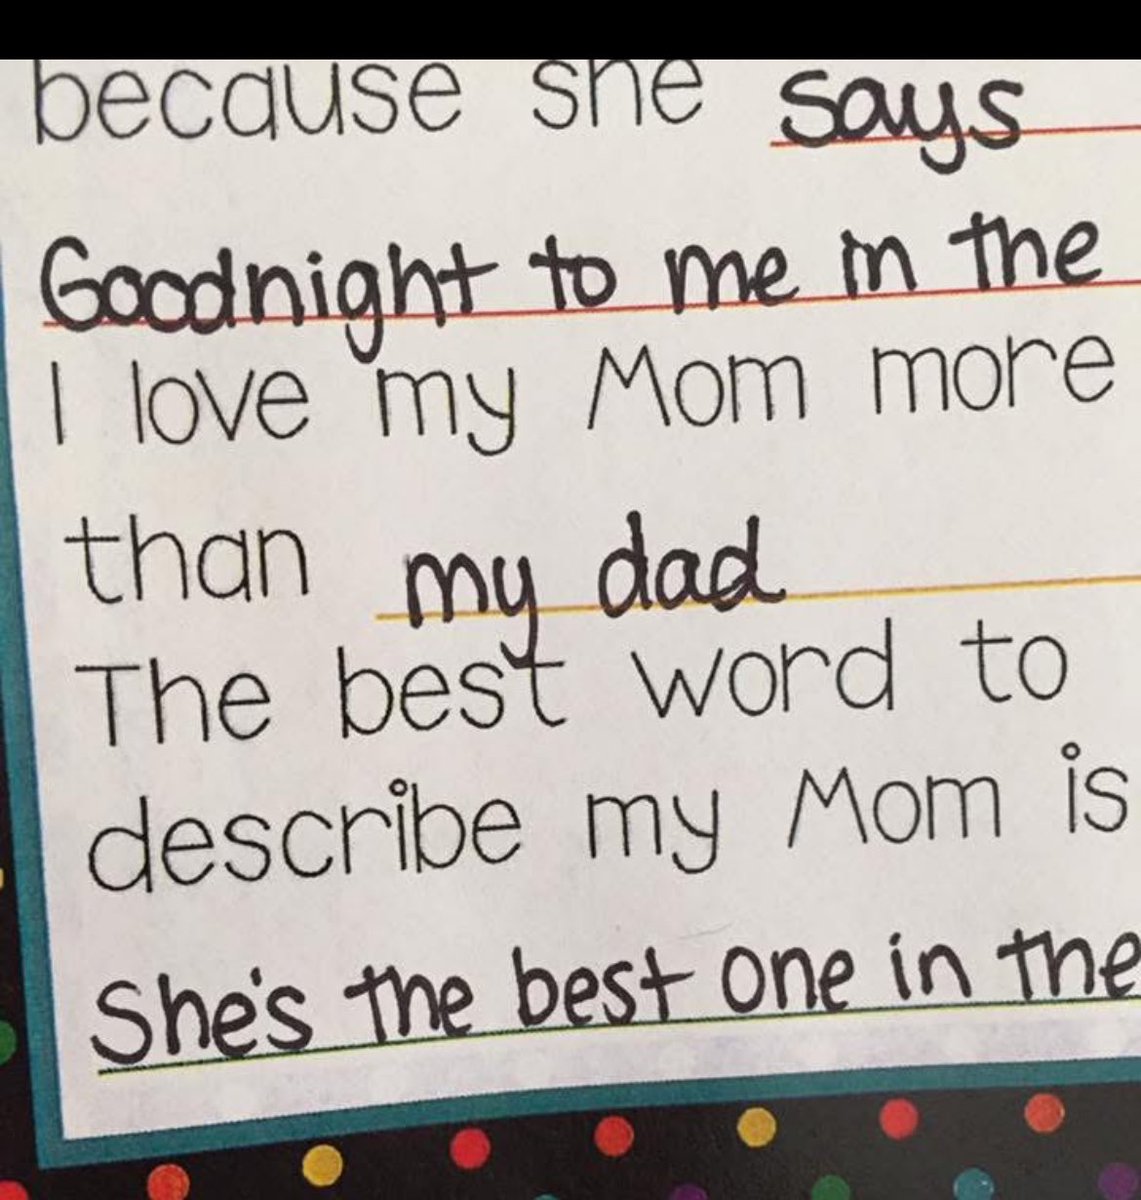 because she says
Goodnight to me in the
I love my Mom more
than my dad
The best word to
describe my Mom is
She's the best one in the